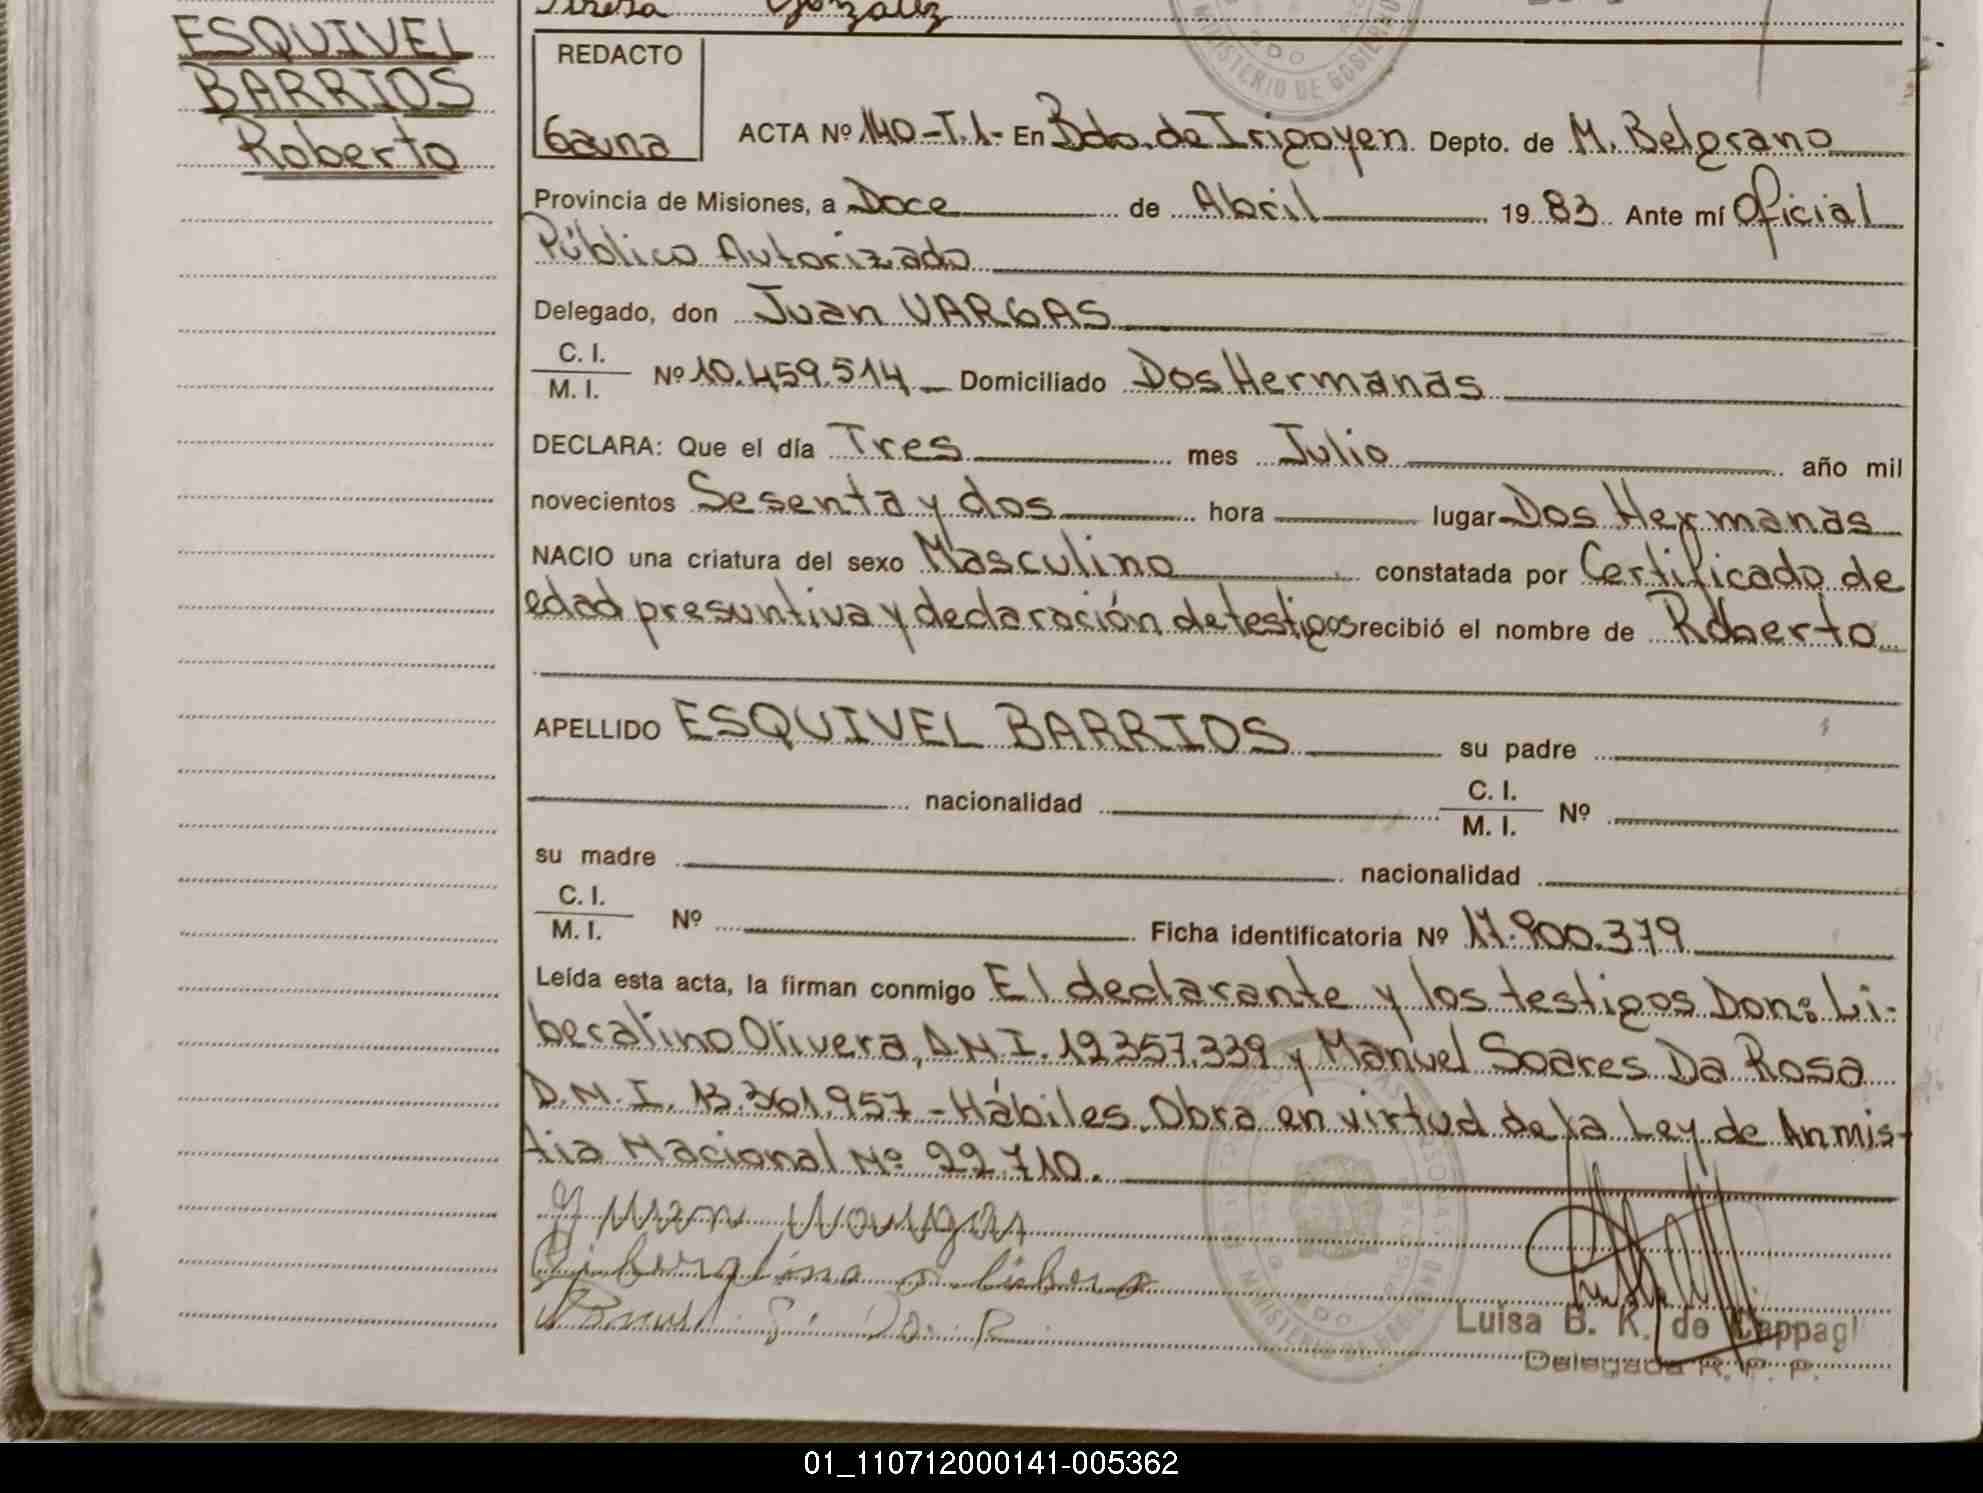 Teresa González
ESQUIVEL
BARRIOS
Roberto
REDACTO
Gauna
MINISTERIO DE GOBIERNO
ACTA Nº 140-T.1- En Bdo. de Irigoyen Depto. de M. Belgrano
Provincia de Misiones, a Doce de Abril 1983 Ante mí Oficial
Público Autorizado
Delegado, don Juan VARGAS
C. I.
M. I. Nº 10.459.514 Domiciliado Dos Hermanas
DECLARA: Que el día Tres mes Julio año mil
novecientos Sesenta y dos hora lugar Dos Hermanas
NACIO una criatura del sexo Masculino constatada por Certificado de
edad presuntiva y declaración de testigos recibió el nombre de Roberto
APELLIDO ESQUIVEL BARRIOS su padre
nacionalidad C. I.
M. I. Nº
su madre nacionalidad
C. I.
M. I. Nº Ficha identificatoria Nº 17.900.379
Leída esta acta, la firman conmigo El declarante y los testigos Don: Li-
beralino Olivera, D.N.I. 12.357.339 y Manuel Soares Da Rosa
D.N.I. 13.361.957 - Hábiles. Obra en virtud de la Ley de Anmis-
tia Nacional Nº 22.710.
MINISTERIO DE GOBIERNO
Luisa B. K. de Cappagl
Delegada R. P. P.
01_110712000141-005362